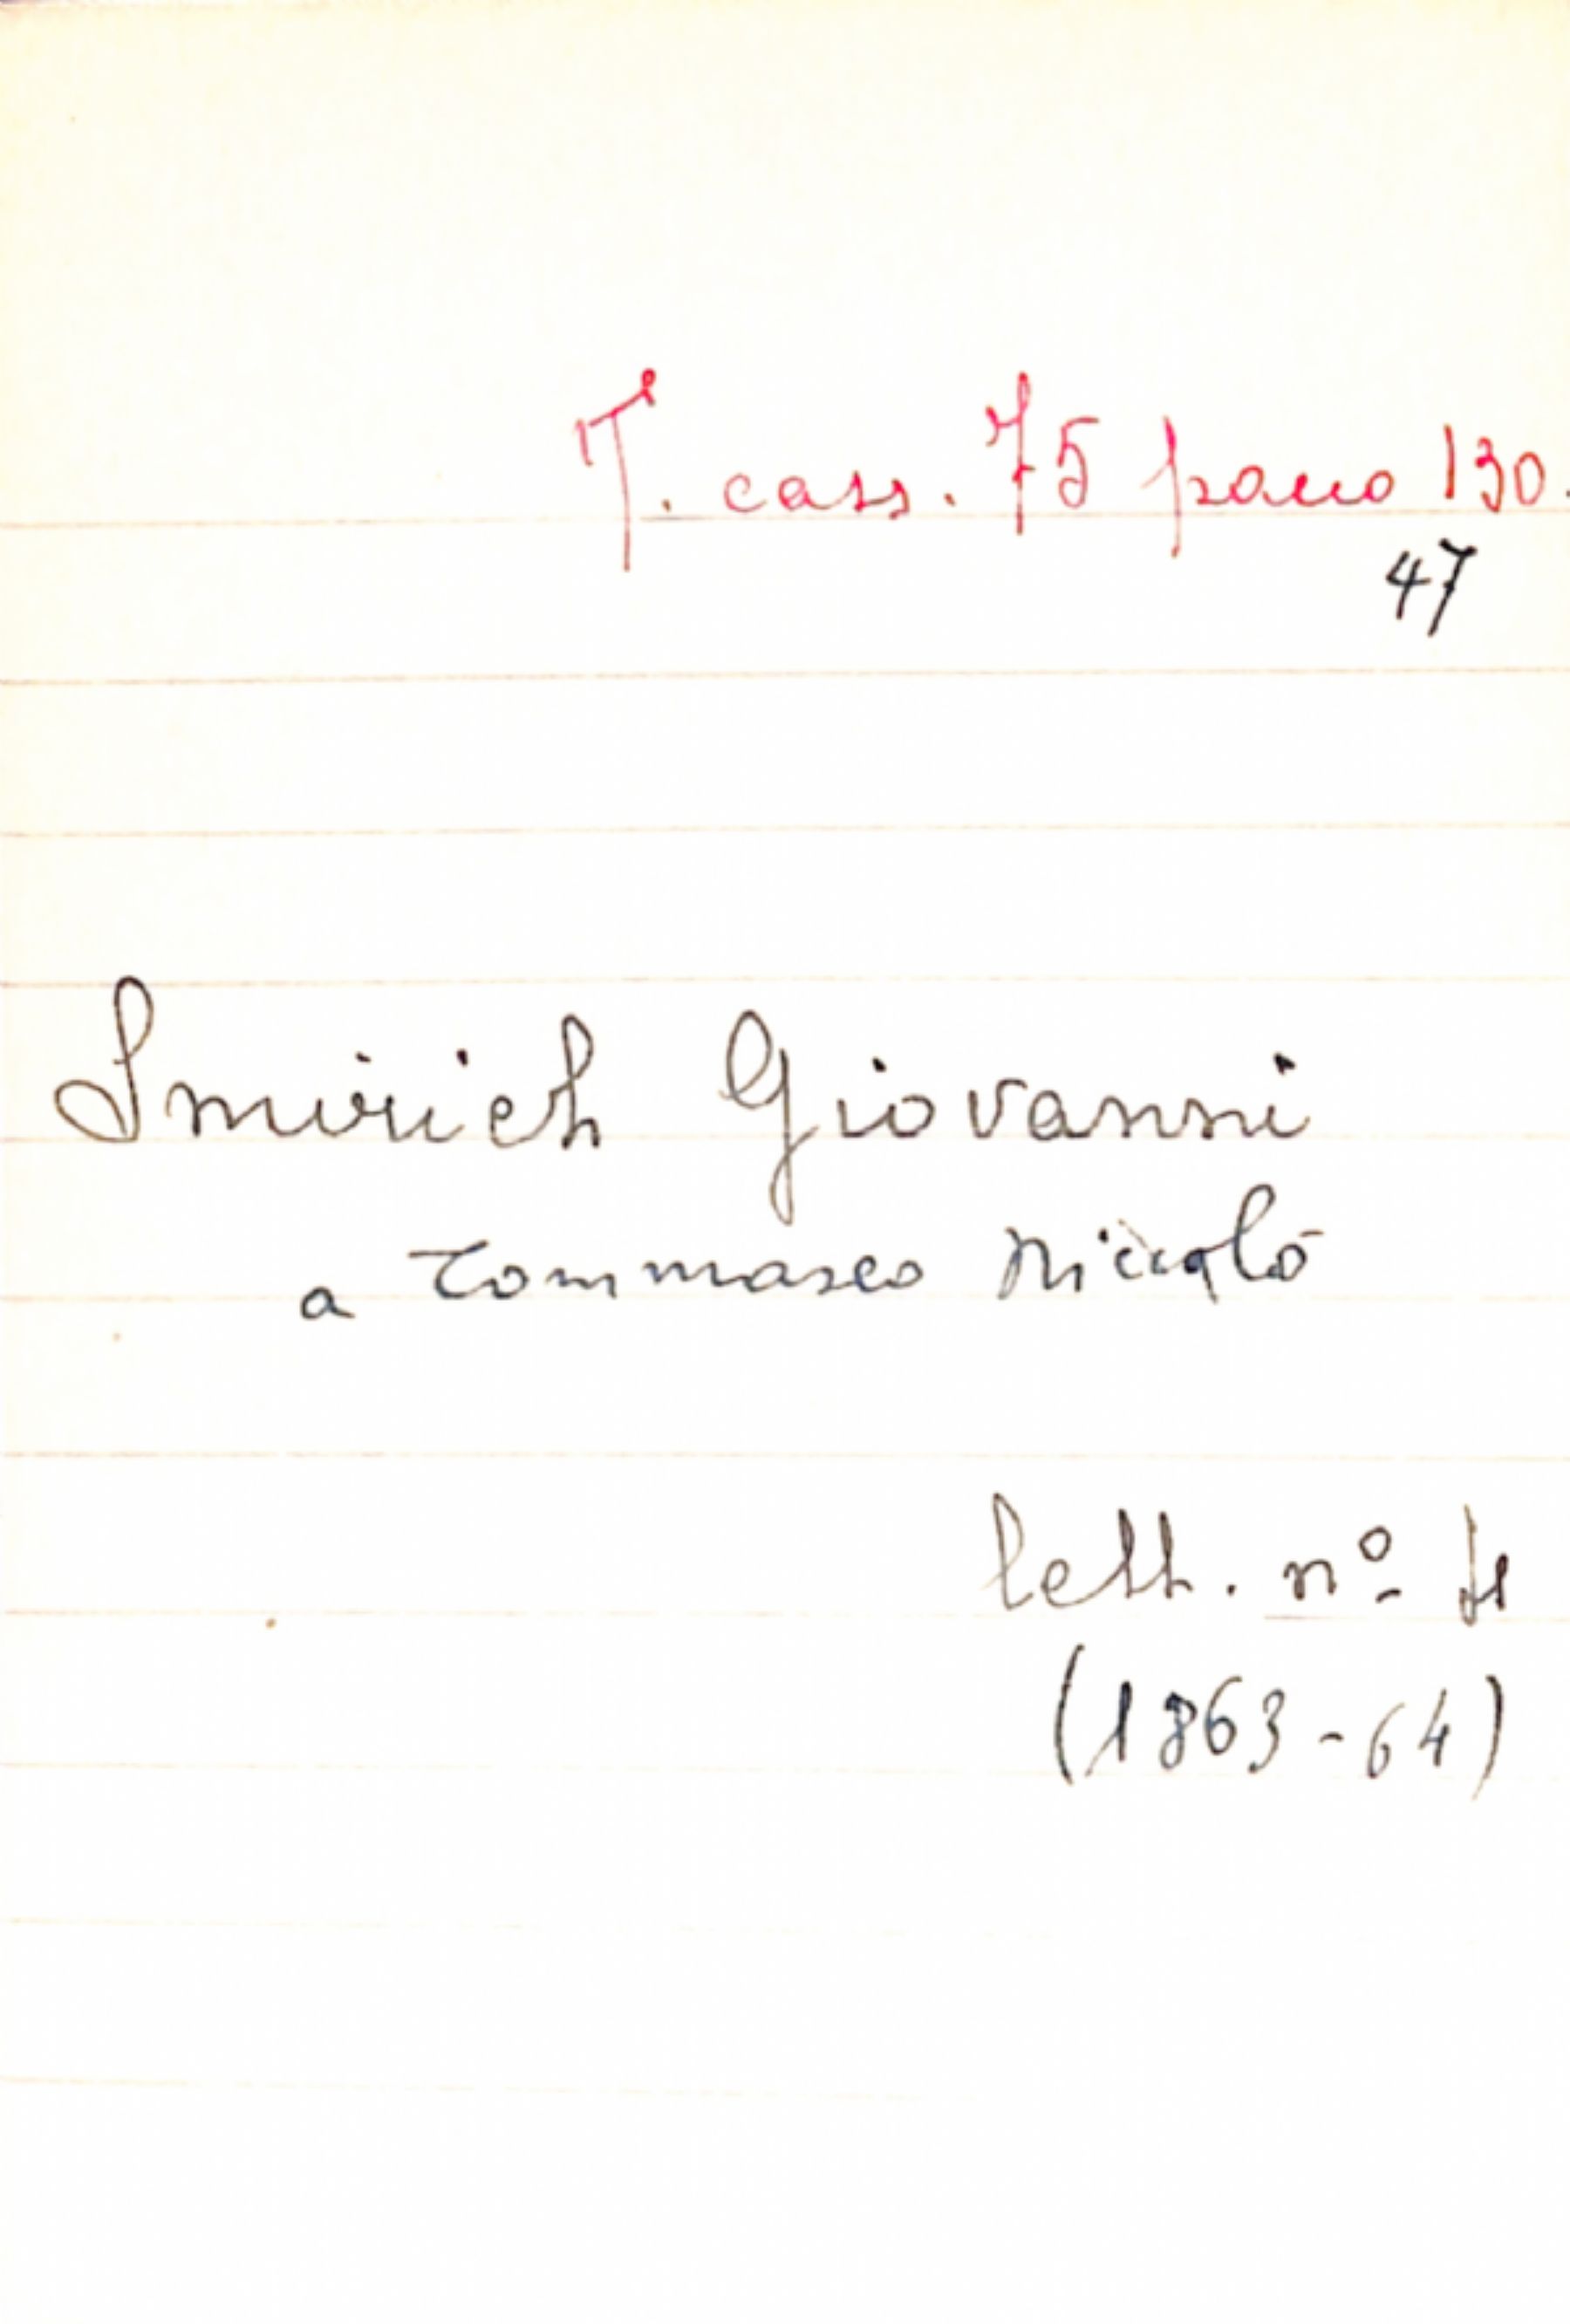 T. cass. 75 panno 130.
47
Smirich Giovanni
a Tommaseo Niccolò
lett. nº 4
(1863-64)